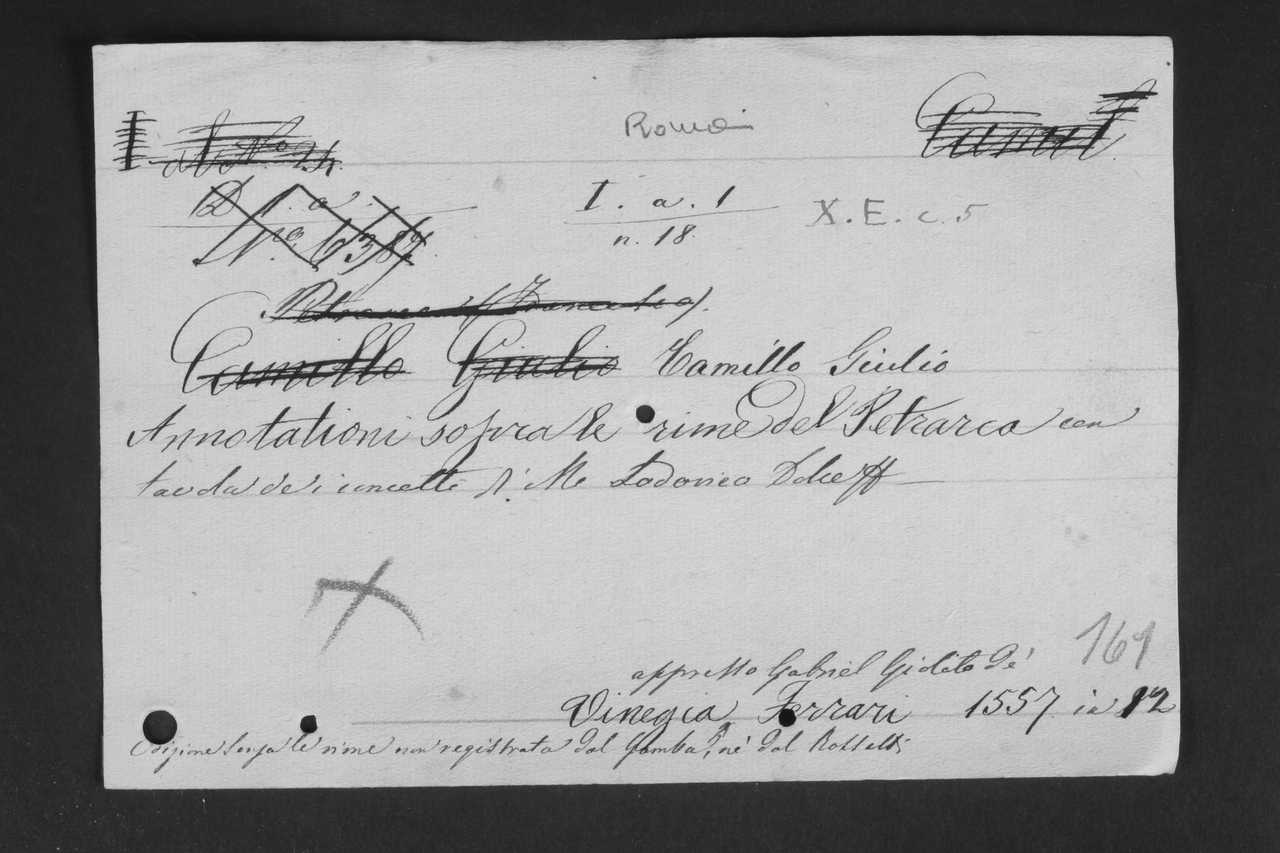 Roma
I. a. 1
n. 18.
X. E. c. 5
Camillo Giulio Camillo Giulio
Annotationi sopra le rime del Petrarca con
tavola de i concetti di Me Lodovico Dolce
161
appresso Gabriel Giolito de'
Vinegia Ferrari 1557 in 12
Edizione senza le rime non registrata dal Gamba, nè dal Rossetti